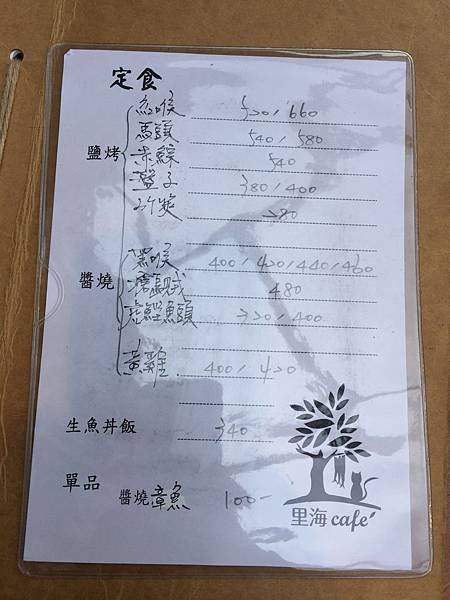 定食
鹽烤
紅喉 520 / 660
馬頭 540 / 580
赤鯮 540
盤子 380 / 400
竹筴 280
醬燒
黑喉 400 / 420 / 440 / 460
480
魚頭 320 / 400
黃雞 400 / 420
生魚丼飯 340
單品
醬燒章魚 100-
里海 café